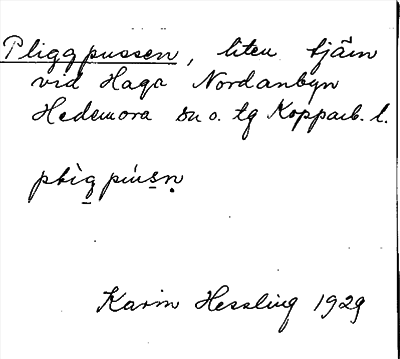 Pliggpussen, liten tjärn
vid Haga Nordanbyn
Hedemora sn o. tg Kopparb. l.
plìgpùsn̥
Karin Hessling 1929